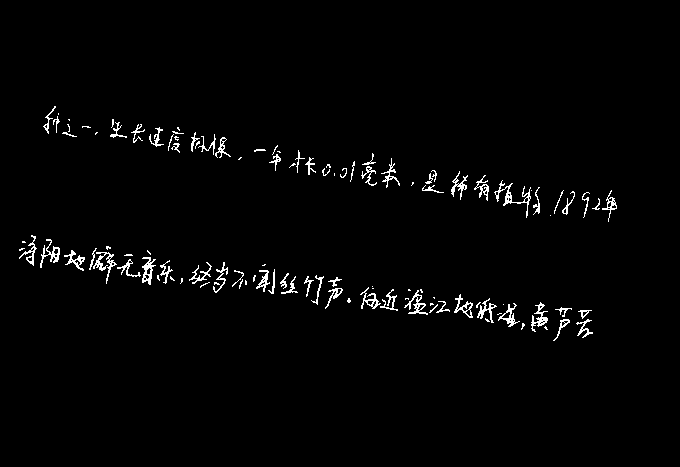 种之一,生长速度极慢,一年才长0.01毫米,是稀有植物.1892年
浔阳地僻无音乐,终岁不闻丝竹声。住近湓江地低湿,黄芦苦